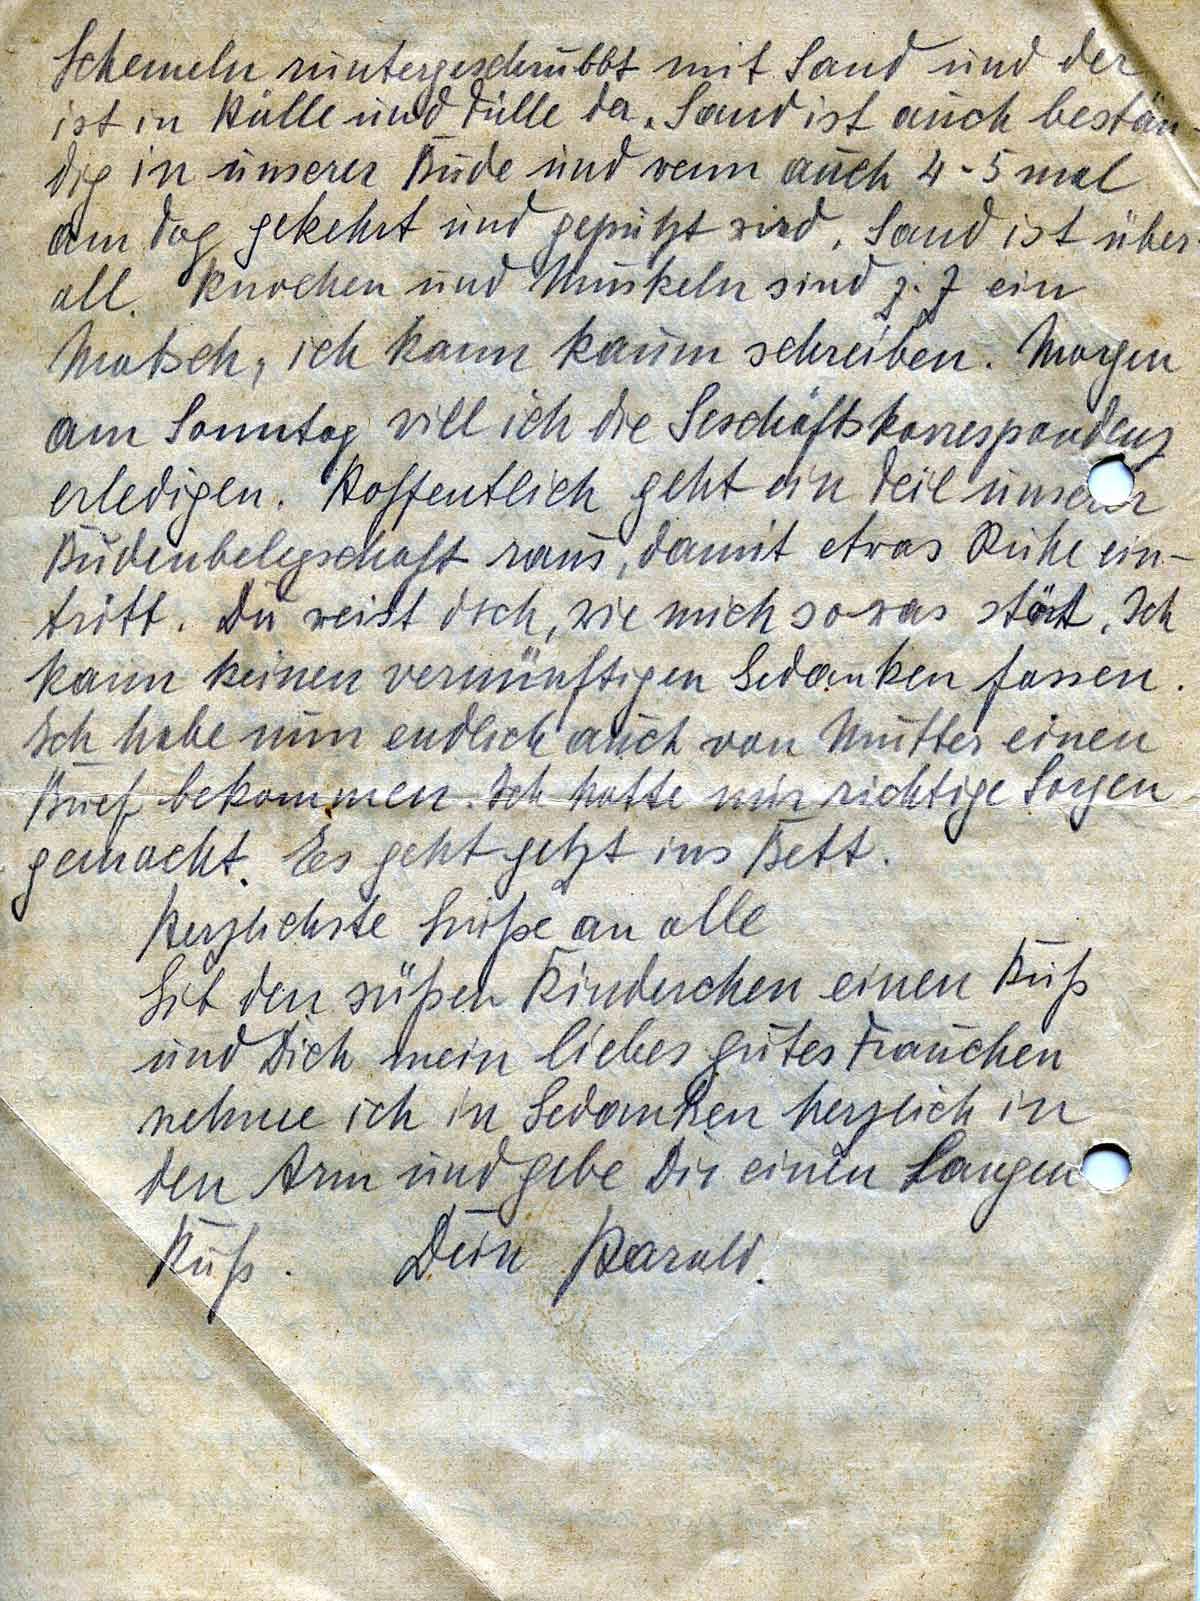 Schemeln runtergeschrubbt mit Sand und der
ist in Hülle und Fülle da. Sand ist auch bestän
dig in unserer Bude und wenn auch 4-5 mal
am Tag gekehrt und geputzt wird, Sand ist über
all. Knochen und Muskeln sind z. Z ein
Matsch, ich kann kaum schreiben. Morgen
am Sonntag will ich die Geschäftskorrespondenz
erledigen. Hoffentlich geht ein Teil unserer
Budenbelegschaft raus, damit etwas Ruhe ein-
tritt. Du weist doch, wie mich sowas stört. Ich
kann keinen vernünftigen Gedanken fassen.
Ich habe nun endlich auch von Mutter einen
Brief bekommen. Ich hatte mir richtige Sorgen
gemacht. Es geht jetzt ins Bett.
Herzlichste Grüße an alle
Gib den süßen Kinderchen einen Kuß
und Dich mein liebes gutes Frauchen
nehme ich in Gedanken herzlich in
den Arm und gebe Dir einen Langen
Kuß. Dein Harald.